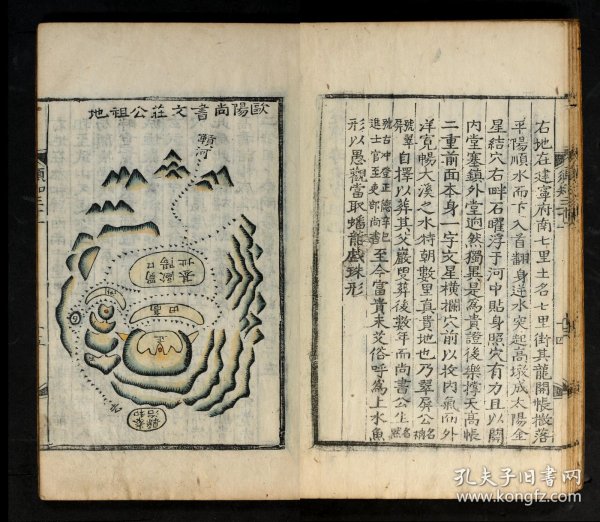 右地在建寧府南七里土名七里街其龍開帳撤落
平陽順水而下入首翻身逆水突起高墩成太陽金
星結穴右畔石曜浮于河中貼身照穴有力且以關
內堂塞鎮外堂逈然獨異是爲貴證後樂撐天高帳
二重前面本身一字文星橫攔穴前以收內氣而外
洋寬暢大溪之水特朝數里真貴地也乃翠屏公
號翠屏自擇以葬其父嚴
葬後數年而尚書公生
號古冲登正德辛巳進士官至吏部尚書
至今富貴未艾俗呼爲上水魚
形以愚觀當取蟠龍戲珠形
歐陽尚書文莊公祖地
順河
孔夫子旧书网
www.kongfz.com